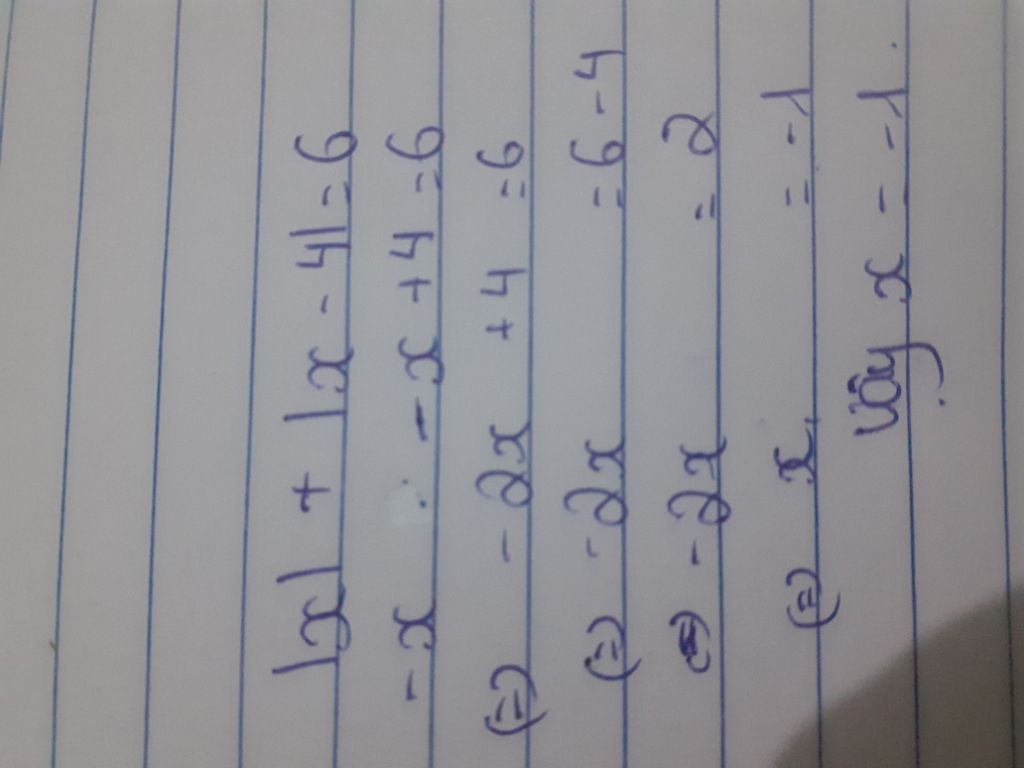 |x| + |x - 4| = 6
-x - x + 4 = 6
(=) - 2x + 4 = 6
(=) - 2x = 6 - 4
(=) - 2x = 2
(=) x = -1
Vậy x = -1.